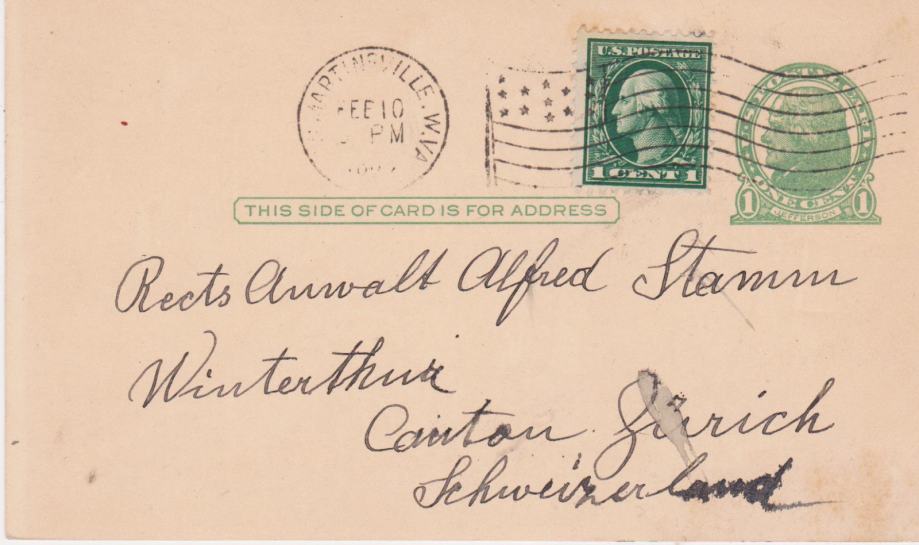 MARTINSVILLE, W.VA
FEB 10
PM
U.S. POSTAGE
1 CENT 1
U.S. POSTAL CARD
ONE CENT
1 JEFFERSON 1
THIS SIDE OF CARD IS FOR ADDRESS
Rects Anwalt Alfred Stamm
Winterthur
Canton Zürich
Schweizerland